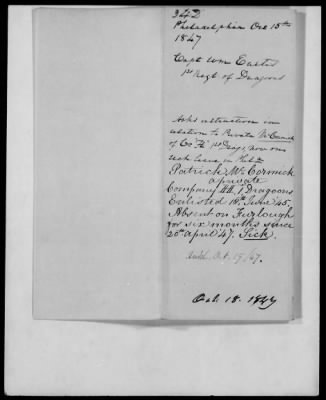 342
Philadelphia Oct 15th
1847
Capt Wm Eustis
1st Regt of Dragoons
Asks instruction in
relation to Private McCormick
of Co "H" 1st Drags, now on
sick leave in Phila
Patrick McCormick
a private
Company "H" 1 Dragoons
Enlisted 18th June '45.
Absent on Furlough
for six months since
20th April '47. Sick.
Oct. 19/47.
Oct. 18. 1847